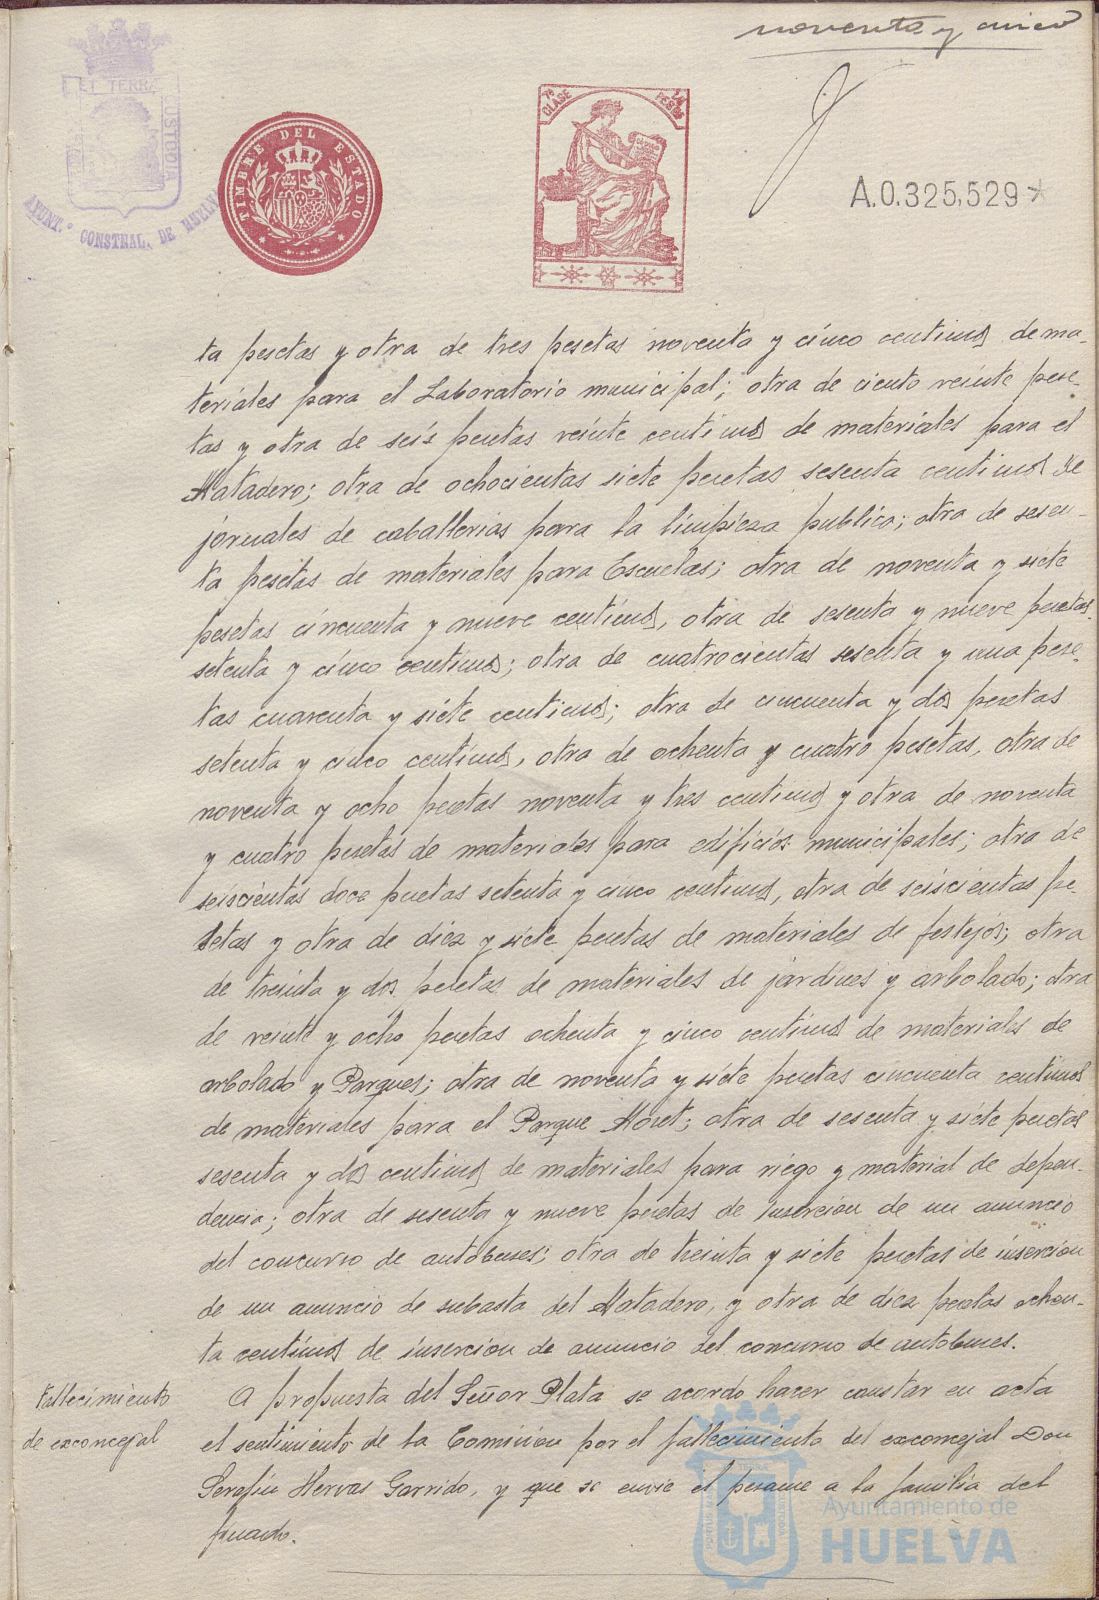 noventa y cinco
ET TERRÆ
CUSTODIA
AYUNT.º CONSTNAL. DE HUELVA
TIMBRE DEL ESTADO
7ª CLASE
PESETAS
A.0.325,529*
ta pesetas y otra de tres pesetas noventa y cinco centimos de ma-
teriales para el Laboratorio municipal; otra de ciento veinte pese-
tas y otra de seis pesetas veinte centimos de materiales para el
Matadero; otra de ochocientas siete pesetas sesenta centimos de
jornales de caballerias para la limpieza publica; otra de sesen-
ta pesetas de materiales para Escuelas; otra de noventa y siete
pesetas cincuenta y nueve centimos, otra de sesenta y nueve pesetas
setenta y cinco centimos; otra de cuatrocientas sesenta y una pese-
tas cuarenta y siete centimos; otra de cincuenta y dos pesetas
setenta y cinco centimos, otra de ochenta y cuatro pesetas, otra de
noventa y ocho pesetas noventa y tres centimos y otra de noventa
y cuatro pesetas de materiales para edificios municipales; otra de
seiscientas doce pesetas setenta y cinco centimos, otra de seiscientas pe-
setas y otra de diez y siete pesetas de materiales de festejos; otra
de treinta y dos pesetas de materiales de jardines y arbolado; otra
de veinte y ocho pesetas ochenta y cinco centimos de materiales de
arbolado y Parques; otra de noventa y siete pesetas cincuenta centimos
de materiales para el Parque Moret; otra de sesenta y siete pesetas
sesenta y dos centimos de materiales para riego y material de depen-
dencia; otra de sesenta y nueve pesetas de insercion de un anuncio
del concurso de autobuses; otra de treinta y siete pesetas de insercion
de un anuncio de subasta del Matadero, y otra de diez pesetas ochen-
ta centimos de insercion de anuncio del concurso de autobuses.
Fallecimiento
de exconcejal
A propuesta del Señor Plata se acordo hacer constar en acta
el sentimiento de la Comision por el fallecimiento del exconcejal Don
Serafin Hervas Garrido, y que se envie el pesame a la familia del
finado.
Ayuntamiento de
HUELVA